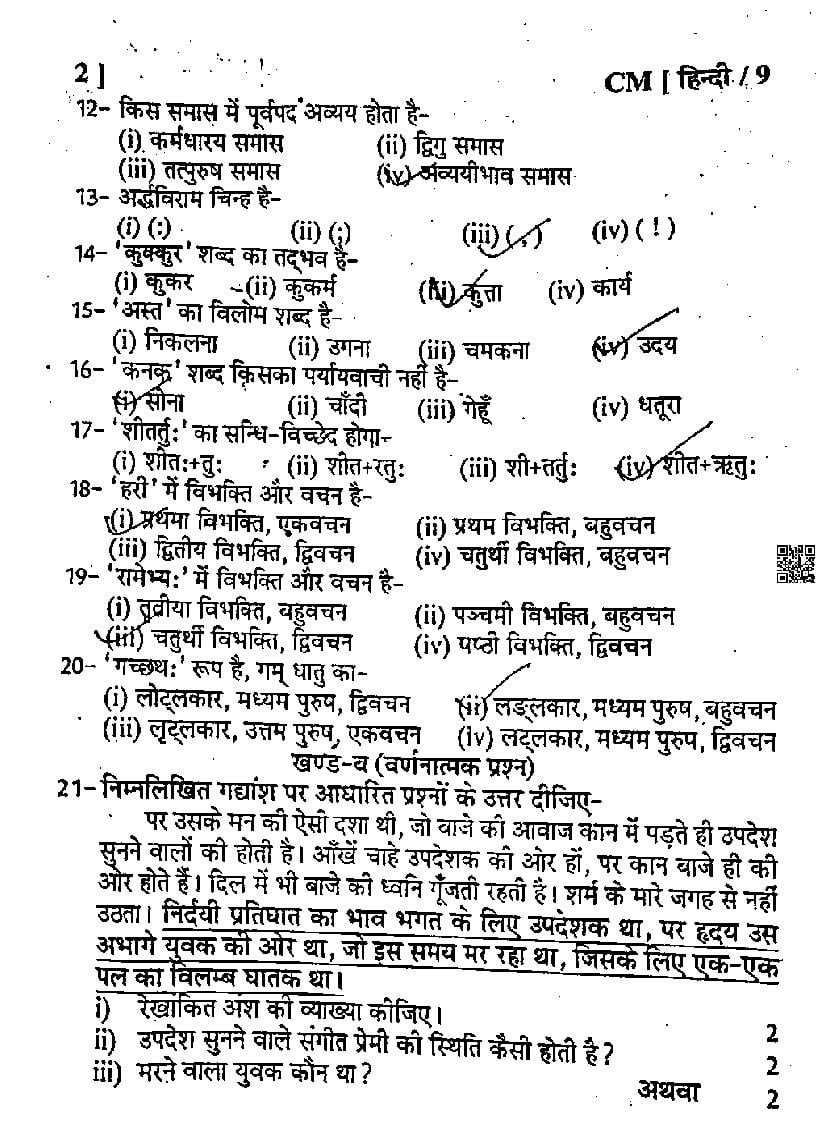 2 ]
CM [ हिन्दी / 9
12- किस समास में पूर्वपद अव्यय होता है-
(i) कर्मधारय समास (ii) द्विगु समास
(iii) तत्पुरुष समास (iv) अव्ययीभाव समास
13- अर्द्धविराम चिन्ह है-
(i) (:) (ii) (;) (iii) (,) (iv) ( ! )
14- 'कुक्कुर' शब्द का तद्भव है-
(i) कुकर (ii) कुकर्म (iii) कुत्ता (iv) कार्य
15- 'अस्त' का विलोम शब्द है-
(i) निकलना (ii) उगना (iii) चमकना (iv) उदय
16- 'कनक' शब्द किसका पर्यायवाची नहीं है-
(i) सोना (ii) चाँदी (iii) गेहूँ (iv) धतूरा
17- 'शीतर्तुः' का सन्धि-विच्छेद होगा-
(i) शीतः+तुः (ii) शीत+रतुः (iii) शी+तर्तुः (iv) शीत+ऋतुः
18- 'हरी' में विभक्ति और वचन है-
(i) प्रथमा विभक्ति, एकवचन (ii) प्रथम विभक्ति, बहुवचन
(iii) द्वितीय विभक्ति, द्विवचन (iv) चतुर्थी विभक्ति, बहुवचन
19- 'रामेभ्यः' में विभक्ति और वचन है-
(i) तृतीया विभक्ति, बहुवचन (ii) पञ्चमी विभक्ति, बहुवचन
(iii) चतुर्थी विभक्ति, द्विवचन (iv) षष्ठी विभक्ति, द्विवचन
20- 'गच्छथः' रूप है, गम् धातु का-
(i) लोट्लकार, मध्यम पुरुष, द्विवचन (ii) लङ्लकार, मध्यम पुरुष, बहुवचन
(iii) लृट्लकार, उत्तम पुरुष, एकवचन (iv) लट्लकार, मध्यम पुरुष, द्विवचन
खण्ड-ब (वर्णनात्मक प्रश्न)
21- निम्नलिखित गद्यांश पर आधारित प्रश्नों के उत्तर दीजिए-
पर उसके मन की ऐसी दशा थी, जो बाजे की आवाज कान में पड़ते ही उपदेश
सुनने वालों की होती है। आँखें चाहे उपदेशक की ओर हों, पर कान बाजे ही की
ओर होते हैं। दिल में भी बाजे की ध्वनि गूँजती रहती है। शर्म के मारे जगह से नहीं
उठता। निर्दयी प्रतिघात का भाव भगत के लिए उपदेशक था, पर हृदय उस
अभागे युवक की ओर था, जो इस समय मर रहा था, जिसके लिए एक-एक
पल का विलम्ब घातक था।
i) रेखांकित अंश की व्याख्या कीजिए। 2
ii) उपदेश सुनने वाले संगीत प्रेमी की स्थिति कैसी होती है? 2
iii) मरने वाला युवक कौन था? 2
अथवा